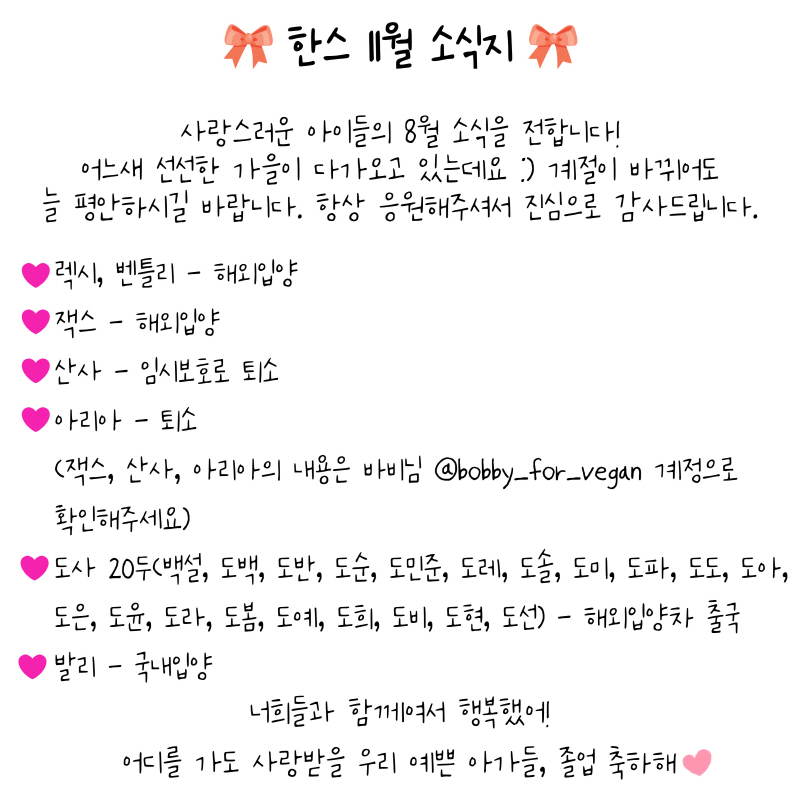 한스 11월 소식지
사랑스러운 아이들의 8월 소식을 전합니다!
어느새 선선한 가을이 다가오고 있는데요 :) 계절이 바뀌어도
늘 평안하시길 바랍니다. 항상 응원해주셔서 진심으로 감사드립니다.
렉시, 벤틀리 - 해외입양
잭스 - 해외입양
산사 - 임시보호로 퇴소
아리아 - 퇴소
(잭스, 산사, 아리아의 내용은 바비님 @bobby_for_vegan 계정으로
확인해주세요)
도사 20두(백설, 도백, 도반, 도순, 도민준, 도레, 도솔, 도미, 도파, 도도, 도아,
도은, 도윤, 도라, 도봄, 도예, 도희, 도비, 도현, 도선) - 해외입양차 출국
발리 - 국내입양
너희들과 함께여서 행복했어!
어디를 가도 사랑받을 우리 예쁜 아가들, 졸업 축하해